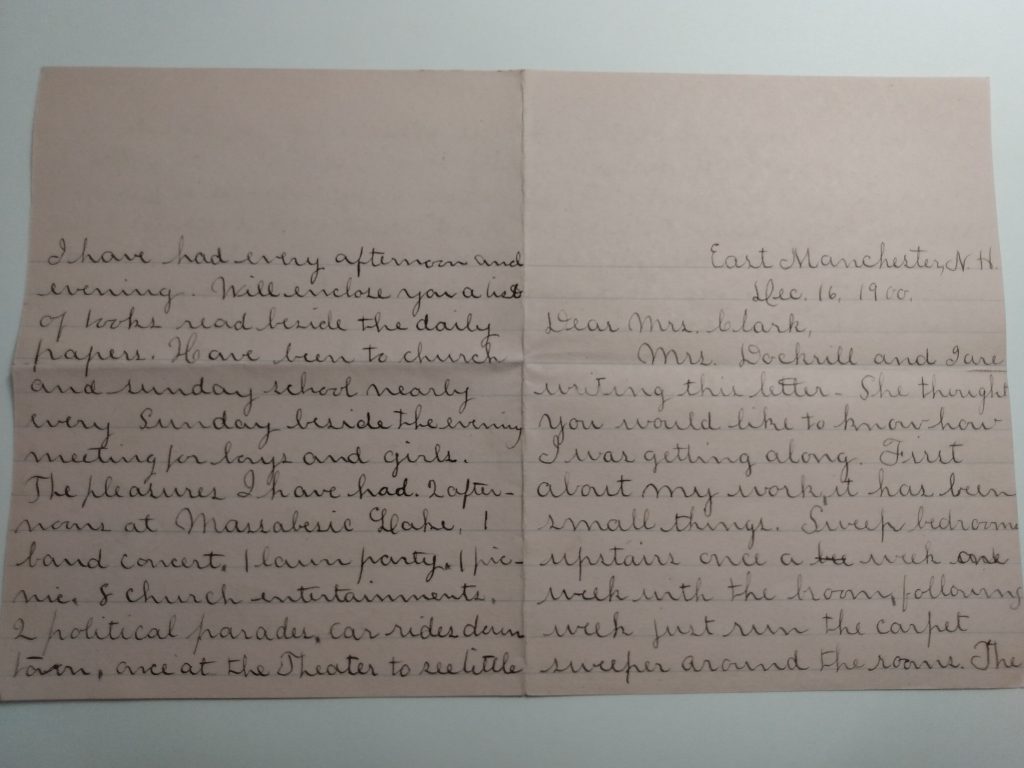 East Manchester, N. H.
Dec. 16, 1900.
Dear Mrs. Clark,
Mrs. Dockrill and I are
writing this letter. She thought
you would like to know how
I was getting along. First
about my work, it has been
small things. Sweep bedrooms
upstairs once a week one
week with the broom, following
week just run the carpet
sweeper around the rooms. The
I have had every afternoon and
evening. Will enclose you a list
of books read beside the daily
papers. Have been to church
and sunday school nearly
every Sunday beside the evening
meeting for boys and girls.
The pleasures I have had. 2 after-
noons at Massabesic Lake, 1
band concert, 1 lawn party, 1 pic-
nic, 8 church entertainments,
2 political parades, car rides down
town, once at the Theater to see little